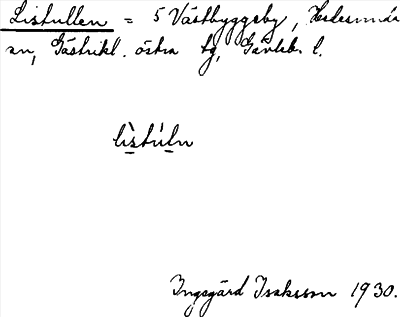 Listullen = 5 Västbyggeby, Hedesunda
sn, Gästrikl. östra tg, Gävleb. l.
lìstúln
Ingegärd Isaksson 1930.